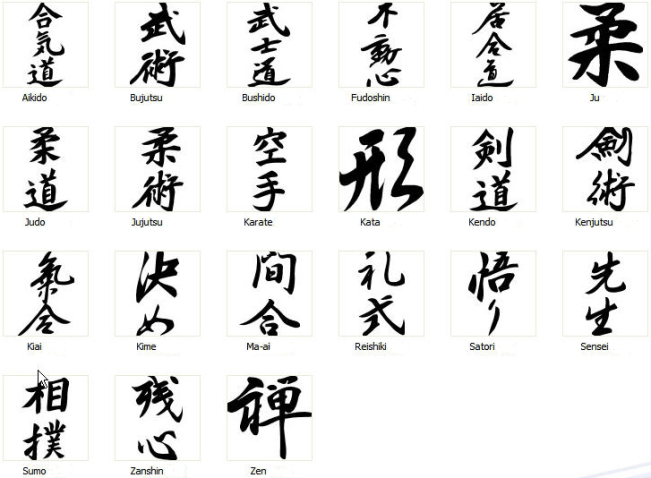 合気道
Aikido
武術
Bujutsu
武士道
Bushido
不動心
Fudoshin
居合道
Iaido
柔
Ju
柔道
Judo
柔術
Jujutsu
空手
Karate
形
Kata
剣道
Kendo
劍術
Kenjutsu
氣合
Kiai
決め
Kime
間合
Ma-ai
礼式
Reishiki
悟り
Satori
先生
Sensei
相撲
Sumo
残心
Zanshin
禅
Zen